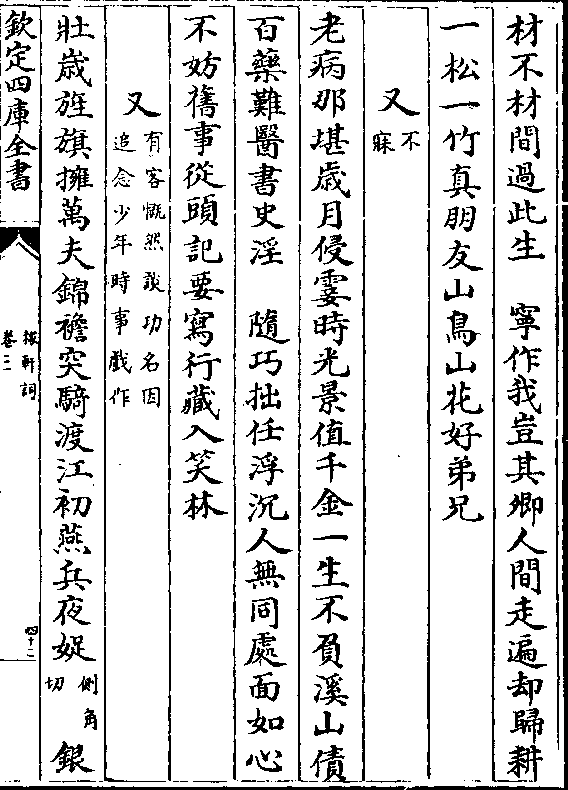 材不材間過此生　寧作我豈其卿人間走遍却歸耕
一松一竹真朋友山鳥山花好弟兄
又不寐
老病那堪歳月侵霎時光景值千金一生不負溪山債
百藥難醫書史淫　隨巧拙任浮沉人無同處面如心
不妨舊事從頭記要寫行藏入笑林
又有客慨然談功名因追念少年時事戲作
壯歳旌旗擁萬夫錦襜突騎渡江初燕兵夜娖側角切銀
欽定四庫全書
稼軒詞
卷三
四十二